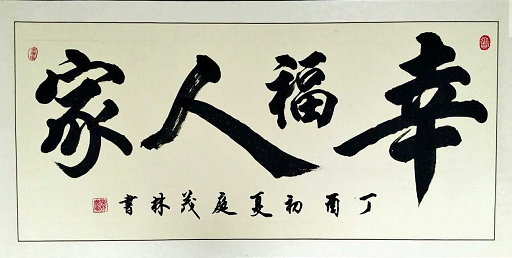 幸福人家
丁酉初夏庭茂林書